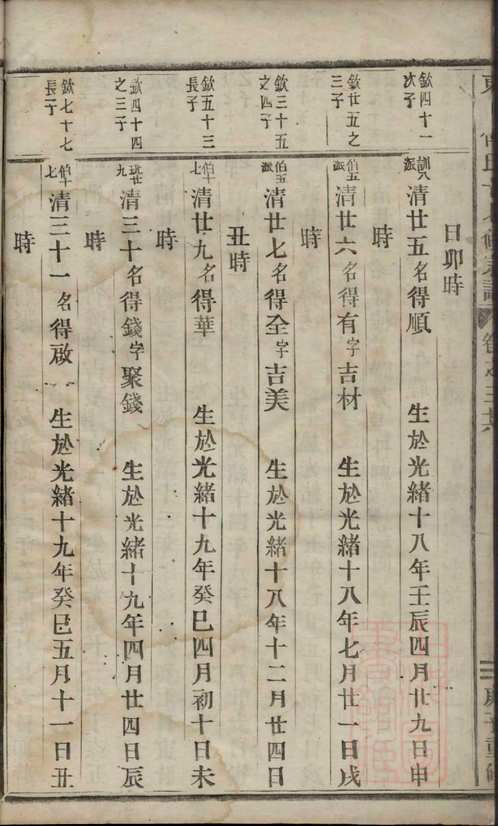 日卯時
欽四十一
次子
清廿五名得順 生於光緒十八年壬辰四月廿九日申
時
欽廿五之
三子
清廿六名得有字吉材 生於光緒十八年七月廿一日戌
時
欽三十五
之四子
清廿七名得全字吉美 生於光緒十八年十二月廿四日
丑時
欽五十三
長子
清廿九名得華 生於光緒十九年癸巳四月初十日未
時
欽四十四
之三子
清三十名得錢字聚錢 生於光緒十九年四月廿四日辰
時
欽七十七
長子
清三十一名得啟 生於光緒十九年癸巳五月十一日丑
時